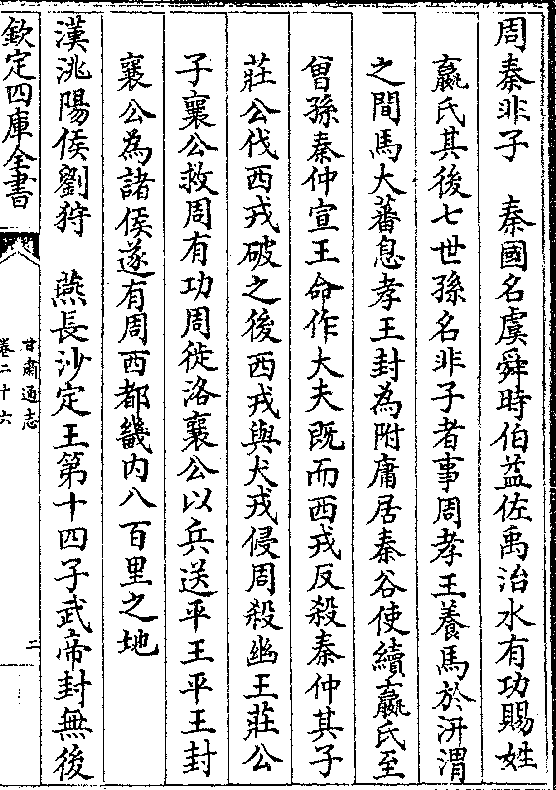 周秦非子　秦國名虞舜時伯益佐禹治水有功賜姓
嬴氏其後七世孫名非子者事周孝王養馬於汧渭
之間馬大蕃息孝王封為附庸居秦谷使續嬴氏至
曾孫秦仲宣王命作大夫既而西戎反殺秦仲其子
莊公伐西戎破之後西戎與犬戎侵周殺幽王莊公
子襄公救周有功周徙洛襄公以兵送平王平王封
襄公為諸侯遂有周西都畿内八百里之地
漢洮陽侯劉狩　燕長沙定王第十四子武帝封無後
欽定四庫全書
甘肅通志
卷二十六
二